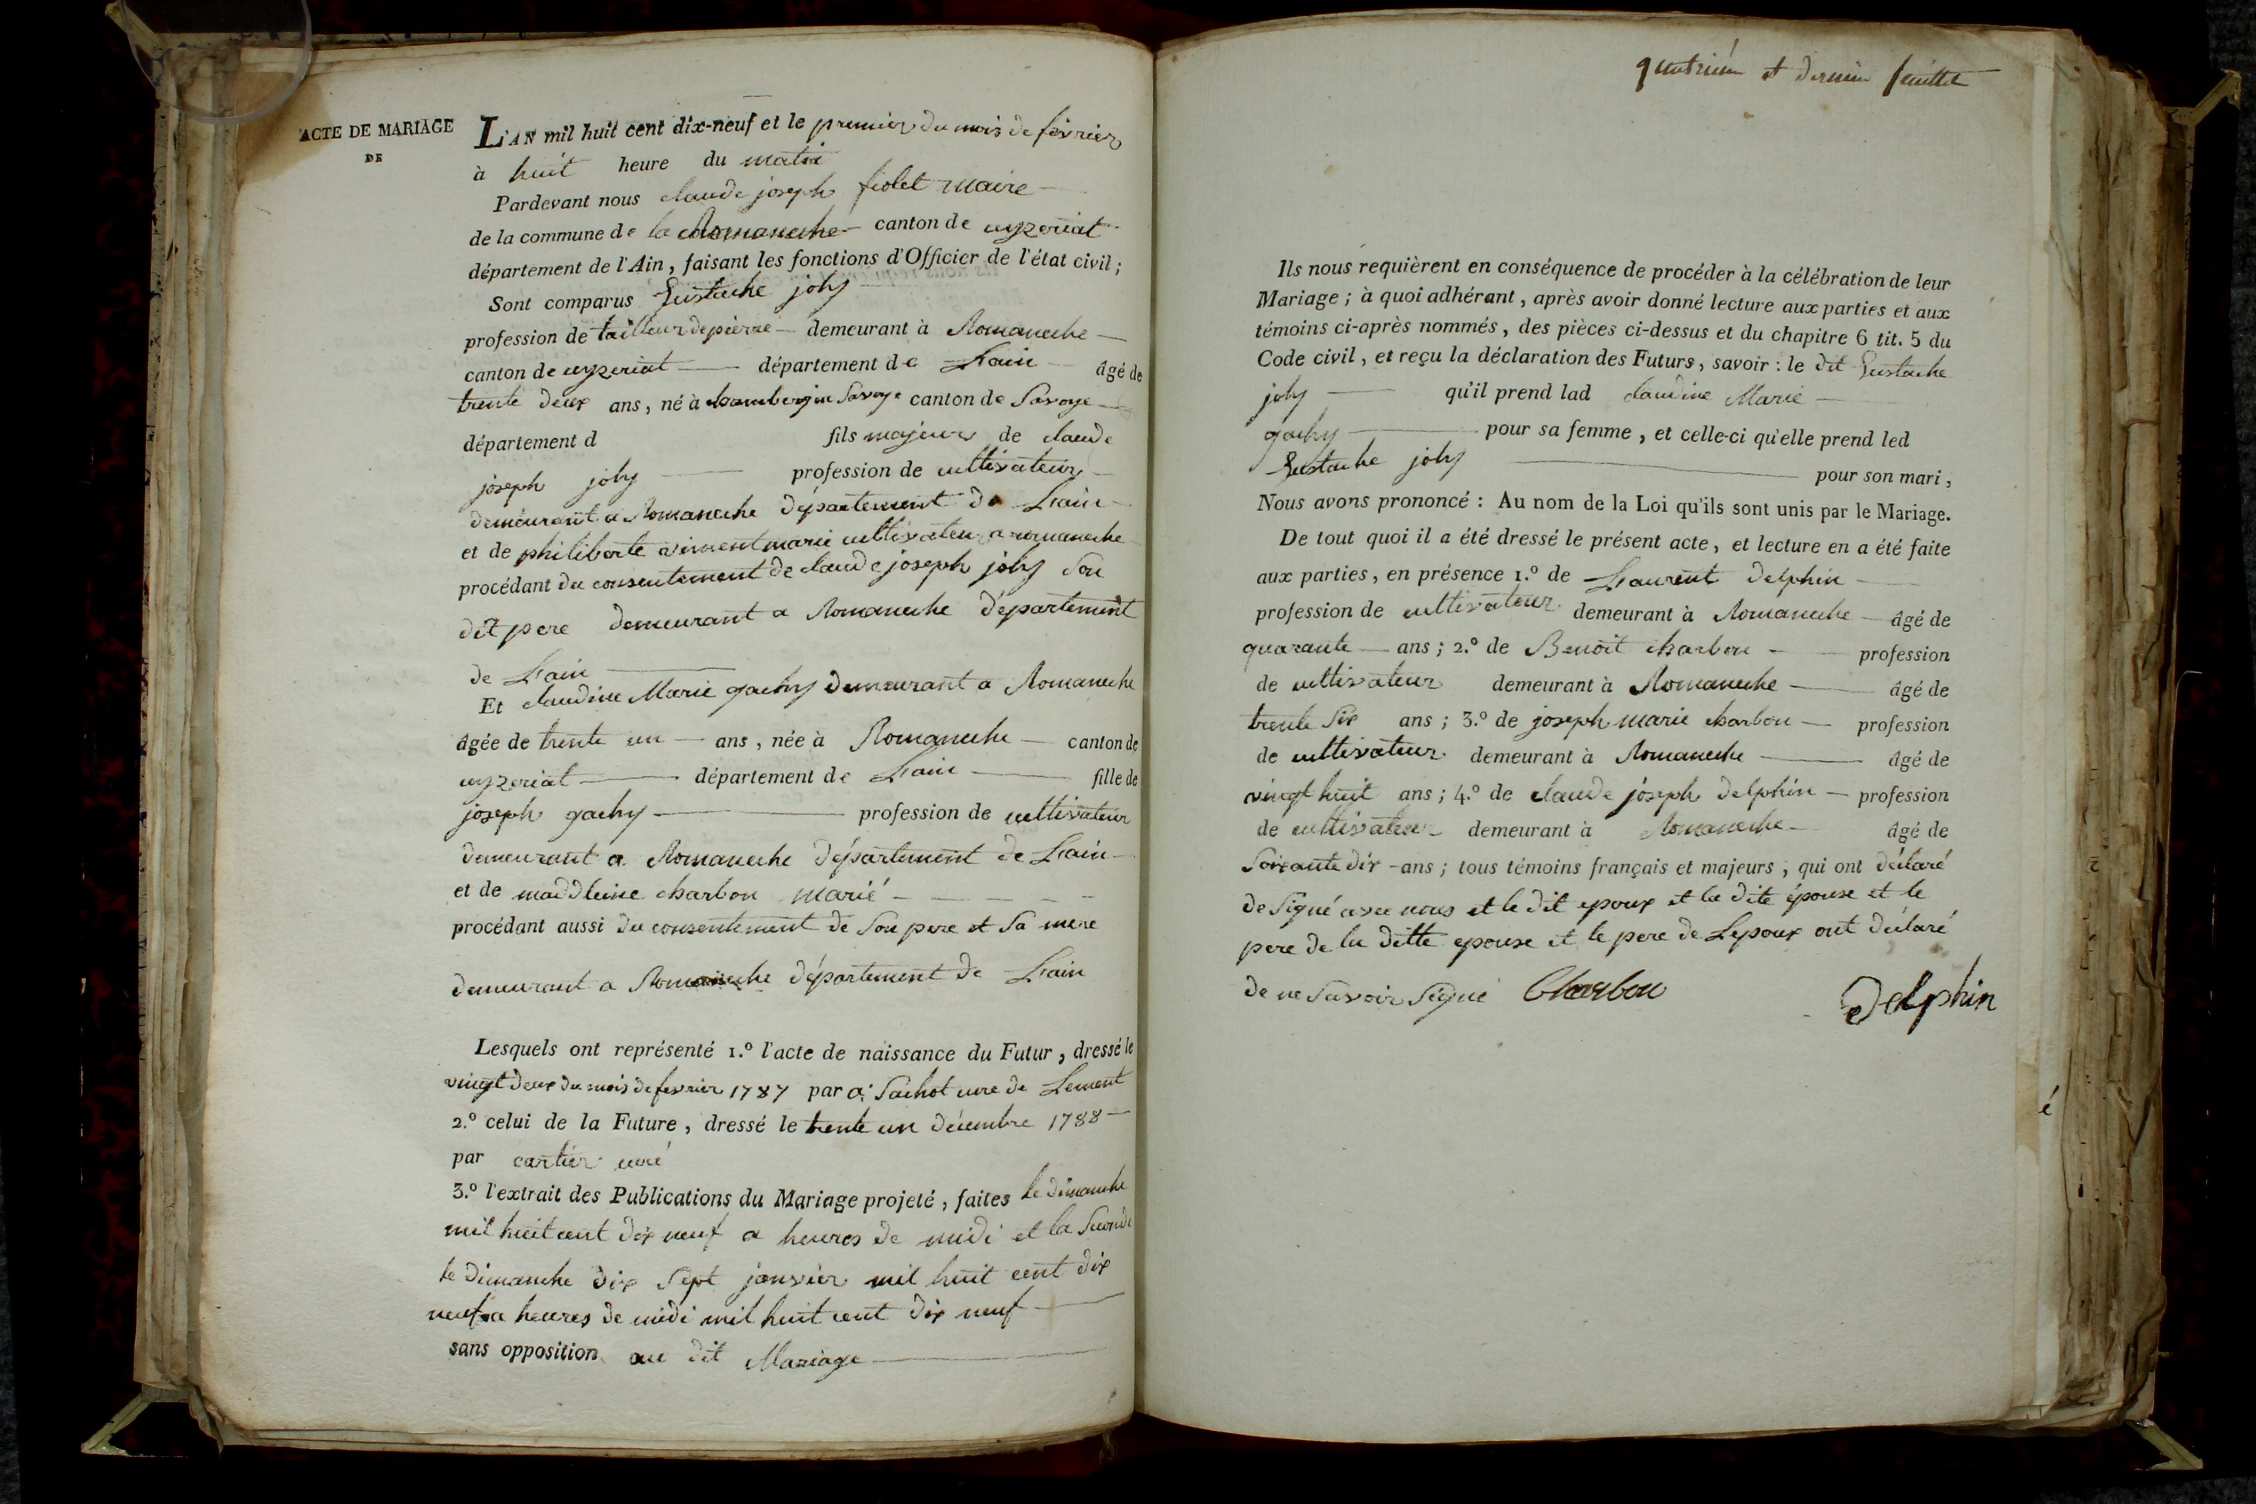 ACTE DE MARIAGE
DE
L'AN mil huit cent dix-neuf et le premier du mois de février
à huit heure du matin
Pardevant nous claude joseph fiolet maire
de la commune de la Romaneche canton de ceyzeriat
département de l'Ain, faisant les fonctions d'Officier de l'état civil;
Sont comparus Eustache joly
profession de tailleur de pierre demeurant à Romaneche
canton de ceyzeriat département de Lain âgé de
trente deux ans, né à en Savoye canton de Savoye
département d fils majeur de claude
joseph joly profession de cultivateur
demeurant a Romaneche département de Lain
et de philiberte marie cultivateur a romaneche
procédant du consentement de claude joseph joly son
dit pere demeurant a Romaneche département
de Lain
Et claudine Marie gachy demeurant a Romaneche
âgée de trente un ans, née à Romaneche canton de
ceyzeriat département de Lain fille de
joseph gachy profession de cultivateur
demeurant a Romaneche département de Lain
et de maddleine charbon marié
procédant aussi du consentement de Son pere et Sa mere
demeurant a Romaneche département de Lain
Lesquels ont représenté 1.º l'acte de naissance du Futur, dressé le
vingt deux du mois de fevrier 1787 par curé de Lement
2.º celui de la Future, dressé le trente un décembre 1788
par cartier curé
3.º l'extrait des Publications du Mariage projeté, faites le dimanche
mil huit cent dix neuf a heures de midi et la Seconde
le dimanche dix Sept janvier mil huit cent dix
neuf a heures de midi mil huit cent dix neuf
sans opposition au dit Mariage
quatriém et dernier feuillet
Ils nous requièrent en conséquence de procéder à la célébration de leur
Mariage; à quoi adhérant, après avoir donné lecture aux parties et aux
témoins ci-après nommés, des pièces ci-dessus et du chapitre 6 tit. 5 du
Code civil, et reçu la déclaration des Futurs, savoir: le dit Eustache
joly qu'il prend lad claudine Marie
gachy pour sa femme, et celle-ci qu'elle prend led
Eustache joly pour son mari,
Nous avons prononcé: Au nom de la Loi qu'ils sont unis par le Mariage.
De tout quoi il a été dressé le présent acte, et lecture en a été faite
aux parties, en présence 1.º de Laurent delphin
profession de cultivateur demeurant à Romaneche âgé de
quarante ans; 2.º de Benoit charbon profession
de cultivateur demeurant à Romaneche âgé de
trente Six ans; 3.º de joseph marie charbon profession
de cultivateur demeurant à Romaneche âgé de
vingt huit ans; 4.º de claude joseph delphin profession
de cultivateur demeurant à Romaneche âgé de
Soixante dix ans; tous témoins français et majeurs, qui ont déclaré
de Signé avec nous et le dit epoux et la dite épouse et le
pere de la ditte epouse et le pere de Lepoux ont déclaré
de ne Savoir Signé Charbon Delphin
é